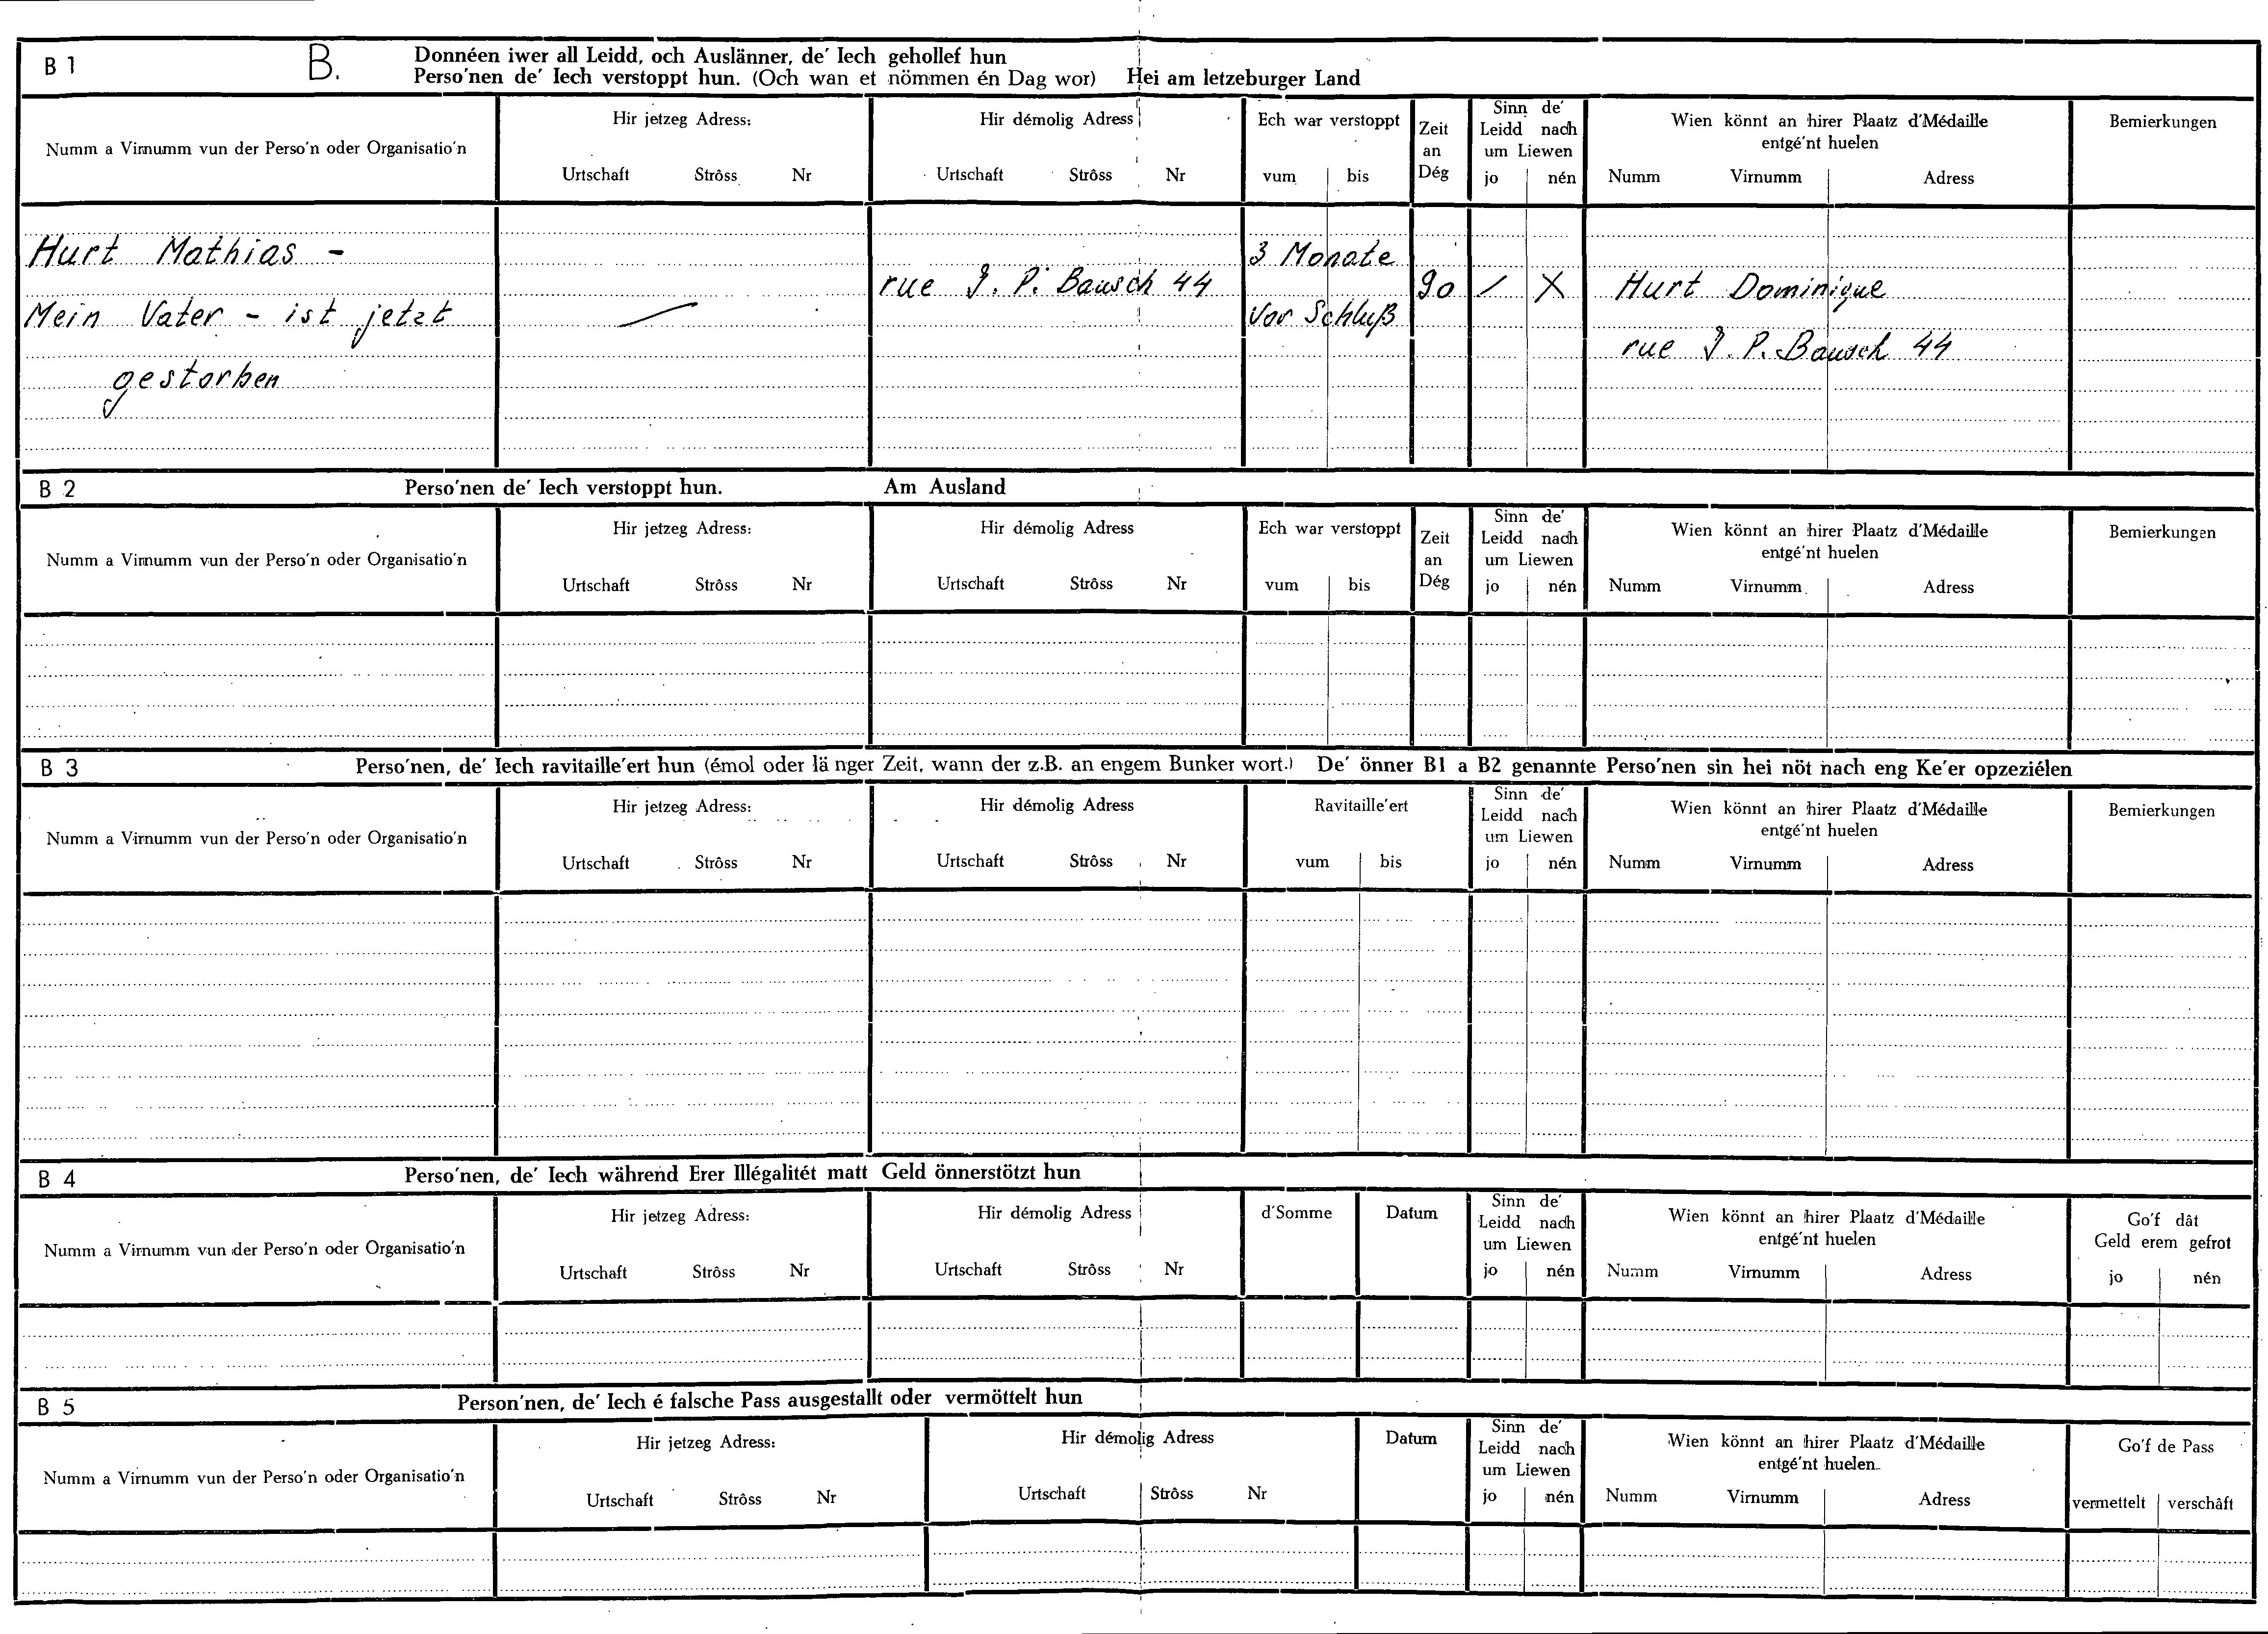 B 1 B. Donnéen iwer all Leidd, och Auslänner, de' Iech gehollef hun
Perso'nen de' Iech verstoppt hun. (Och wan et nömmen én Dag wor) Hei am letzeburger Land
Numm a Virnumm vun der Perso'n oder Organisatio'n
Hir jetzeg Adress:
Urtschaft Strôss Nr
Hir démolig Adress
Urtschaft Strôss Nr
Ech war verstoppt
vum bis
Zeit
an
Dég
Sinn de'
Leidd nach
um Liewen
jo nén
Wien könnt an hirer Plaatz d'Médaille
entgé'nt huelen
Numm Virnumm Adress
Bemierkungen
Hurt Mathias -
Mein Vater - ist jetzt
gestorben
rue J. P. Bausch 44
3 Monate
vor Schluß
90 / X
Hurt Dominique
rue J. P. Bausch 44
B 2 Perso'nen de' Iech verstoppt hun. Am Ausland
Numm a Virnumm vun der Perso'n oder Organisatio'n
Hir jetzeg Adress:
Urtschaft Strôss Nr
Hir démolig Adress
Urtschaft Strôss Nr
Ech war verstoppt
vum bis
Zeit
an
Dég
Sinn de'
Leidd nach
um Liewen
jo nén
Wien könnt an hirer Plaatz d'Médaille
entgé'nt huelen
Numm Virnumm Adress
Bemierkungen
B 3 Perso'nen, de' Iech ravitaille'ert hun (émol oder länger Zeit, wann der z.B. an engem Bunker wort.) De' önner B1 a B2 genannte Perso'nen sin hei nöt nach eng Ke'er opzeziélen
Numm a Virnumm vun der Perso'n oder Organisatio'n
Hir jetzeg Adress:
Urtschaft Strôss Nr
Hir démolig Adress
Urtschaft Strôss Nr
Ravitaille'ert
vum bis
Sinn de'
Leidd nach
um Liewen
jo nén
Wien könnt an hirer Plaatz d'Médaille
entgé'nt huelen
Numm Virnumm Adress
Bemierkungen
B 4 Perso'nen, de' Iech während Erer Illégalitét matt Geld önnerstötzt hun
Numm a Virnumm vun der Perso'n oder Organisatio'n
Hir jetzeg Adress:
Urtschaft Strôss Nr
Hir démolig Adress
Urtschaft Strôss Nr
d'Somme
Datum
Sinn de'
Leidd nach
um Liewen
jo nén
Wien könnt an hirer Plaatz d'Médaille
entgé'nt huelen
Numm Virnumm Adress
Go'f dât
Geld erem gefrot
jo nén
B 5 Person'nen, de' Iech é falsche Pass ausgestallt oder vermöttelt hun
Numm a Virnumm vun der Perso'n oder Organisatio'n
Hir jetzeg Adress:
Urtschaft Strôss Nr
Hir démolig Adress
Urtschaft Strôss Nr
Datum
Sinn de'
Leidd nach
um Liewen
jo nén
Wien könnt an hirer Plaatz d'Médaille
entgé'nt huelen
Numm Virnumm Adress
Go'f de Pass
vermettelt verschâft